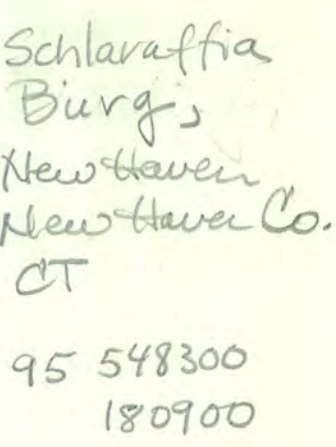 Schlaraffia
Burg,
New Haven
New Haven Co.
CT
95 548300
180900